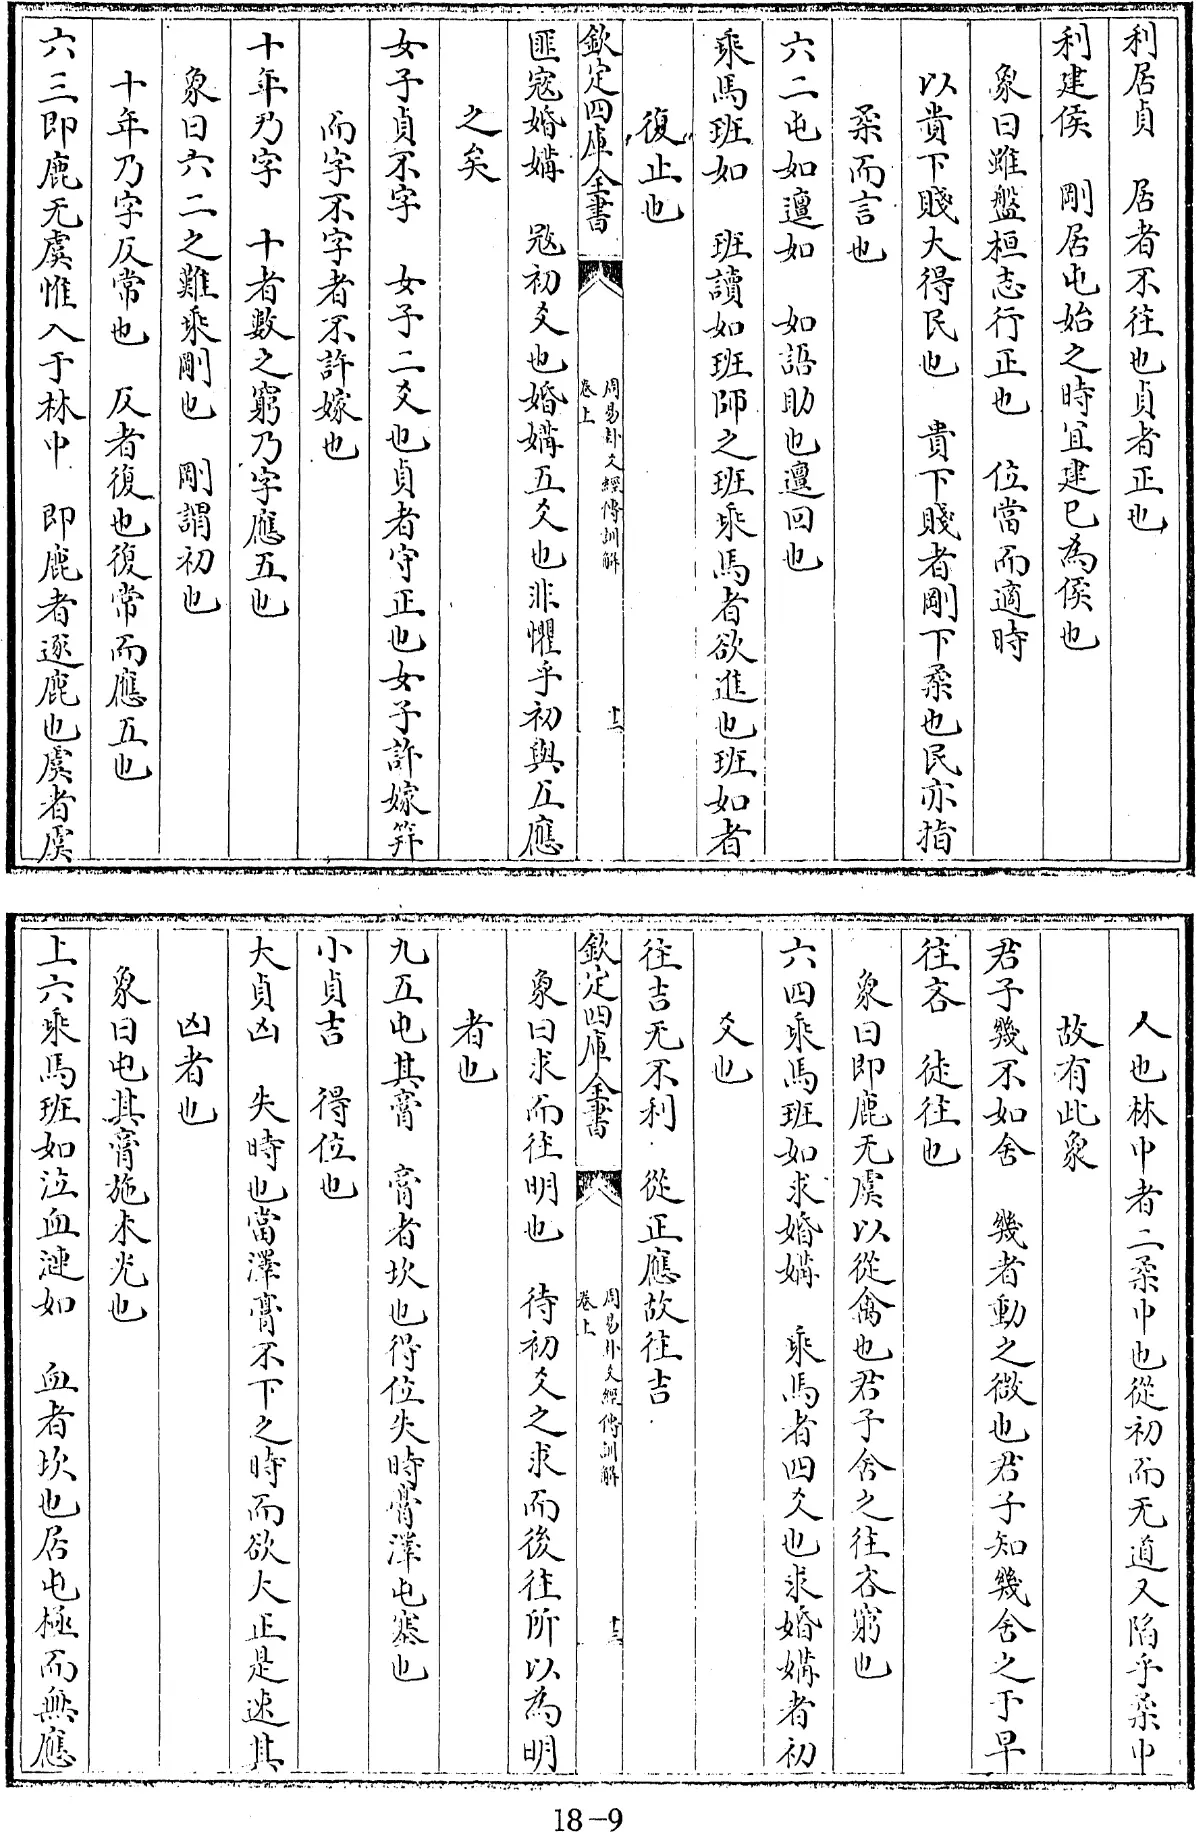 利居貞　居者不往也貞者正也
利建侯　剛居屯始之時宜建已為侯也
象曰雖盤桓志行正也　位當而適時
以貴下賤大得民也　貴下賤者剛下柔也民亦指
柔而言也
六二屯如邅如　如語助也邅回也
乘馬班如　班讀如班師之班乘馬者欲進也班如者
復止也
欽定四庫全書
周易卦爻經傳訓解
卷上
十二
匪寇婚媾　冦初爻也婚媾五爻也非懼乎初與五應
之矣
女子貞不字　女子二爻也貞者守正也女子許嫁筓
而字不字者不許嫁也
十年乃字　十者數之窮乃字應五也
象曰六二之難乘剛也　剛謂初也
十年乃字反常也　反者復也復常而應五也
六三即鹿无虞惟入于林中　即鹿者逐鹿也虞者虞
人也林中者二柔中也從初而无道又陷乎柔中
故有此象
君子幾不如舍　幾者動之微也君子知幾舍之于早
往吝　徒往也
象曰即鹿无虞以從禽也君子舍之往吝窮也
六四乘馬班如求婚媾　乘馬者四爻也求婚媾者初
爻也
往吉无不利　從正應故往吉
欽定四庫全書
周易卦爻經傳訓解
卷上
十三
象曰求而往明也　待初爻之求而後往所以為明
者也
九五屯其膏　膏者坎也得位失時膏澤屯塞也
小貞吉　得位也
大貞凶　失時也當澤膏不下之時而欲大正是速其
凶者也
象曰屯其膏施未光也
上六乘馬班如泣血漣如　血者坎也居屯極而無應
18-9